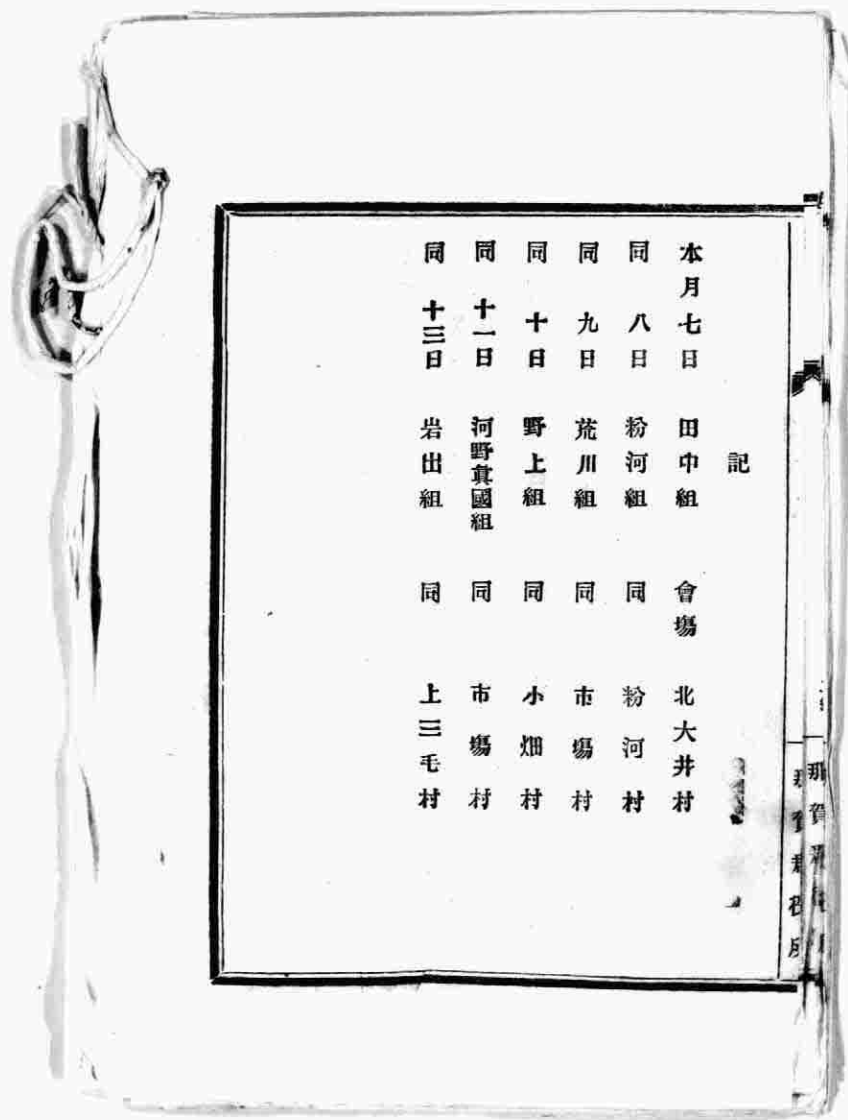 記
本月七日 田中組 會塲 北大井村
同 八日 粉河組 同 粉河村
同 九日 荒川組 同 市塲村
同 十日 野上組 同 小畑村
同 十一日 河野眞國組 同 市塲村
同 十三日 岩出組 同 上三毛村
那賀郡役所